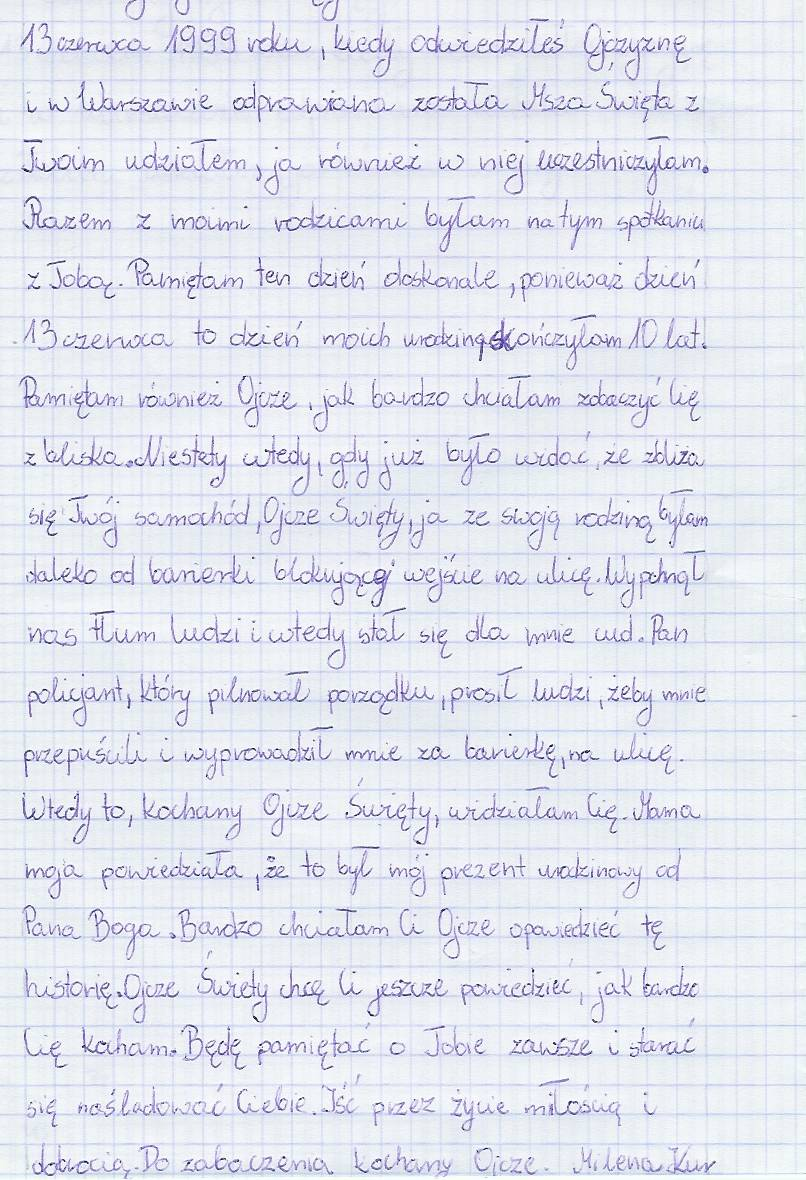 13 czerwca 1999 roku, kiedy odwiedziłeś Ojczyznę
i w Warszawie odprawiana została Msza Święta z
Twoim udziałem, ja również w niej uczestniczyłam.
Razem z moimi rodzicami byłam na tym spotkaniu
z Tobą. Pamiętam ten dzień doskonale, ponieważ dzień
13 czerwca to dzień moich urodzin, skończyłam 10 lat.
Pamiętam również Ojcze, jak bardzo chciałam zobaczyć Cię
z bliska. Niestety wtedy, gdy już było widać, że zbliża
się Twój samochód, Ojcze Święty, ja ze swoją rodziną byłam
daleko od barierki blokującej wejście na ulicę. Wypchnął
nas tłum ludzi i wtedy stał się dla mnie cud. Pan
policjant, który pilnował porządku, prosił ludzi, żeby mnie
przepuścili i wyprowadził mnie za barierkę, na ulicę.
Wtedy to, kochany Ojcze Święty, widziałam Cię. Mama
moja powiedziała, że to był mój prezent urodzinowy od
Pana Boga. Bardzo chciałam Ci Ojcze opowiedzieć tę
historię. Ojcze Święty chcę Ci jeszcze powiedzieć, jak bardzo
Cię kocham. Będę pamiętać o Tobie zawsze i starać
się naśladować Ciebie. Iść przez życie miłością i
dobrocią. Do zobaczenia kochany Ojcze. Milena Kur